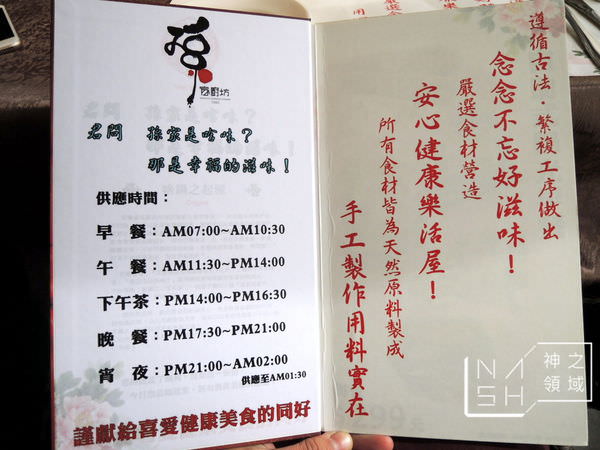 孫
尚廚坊
君問 孫家是啥味？
那是幸福的滋味！
供應時間：
早 餐：AM07:00~AM10:30
午 餐：AM11:30~PM14:00
下午茶：PM14:00~PM16:30
晚 餐：PM17:30~PM21:00
宵 夜：PM21:00~AM02:00
供應至AM01:30
謹獻給喜愛健康美食的同好
遵循古法·繁複工序做出
念念不忘好滋味！
嚴選食材營造
安心健康樂活屋！
所有食材皆為天然原料製成
手工製作用料實在
NASH
神之領域